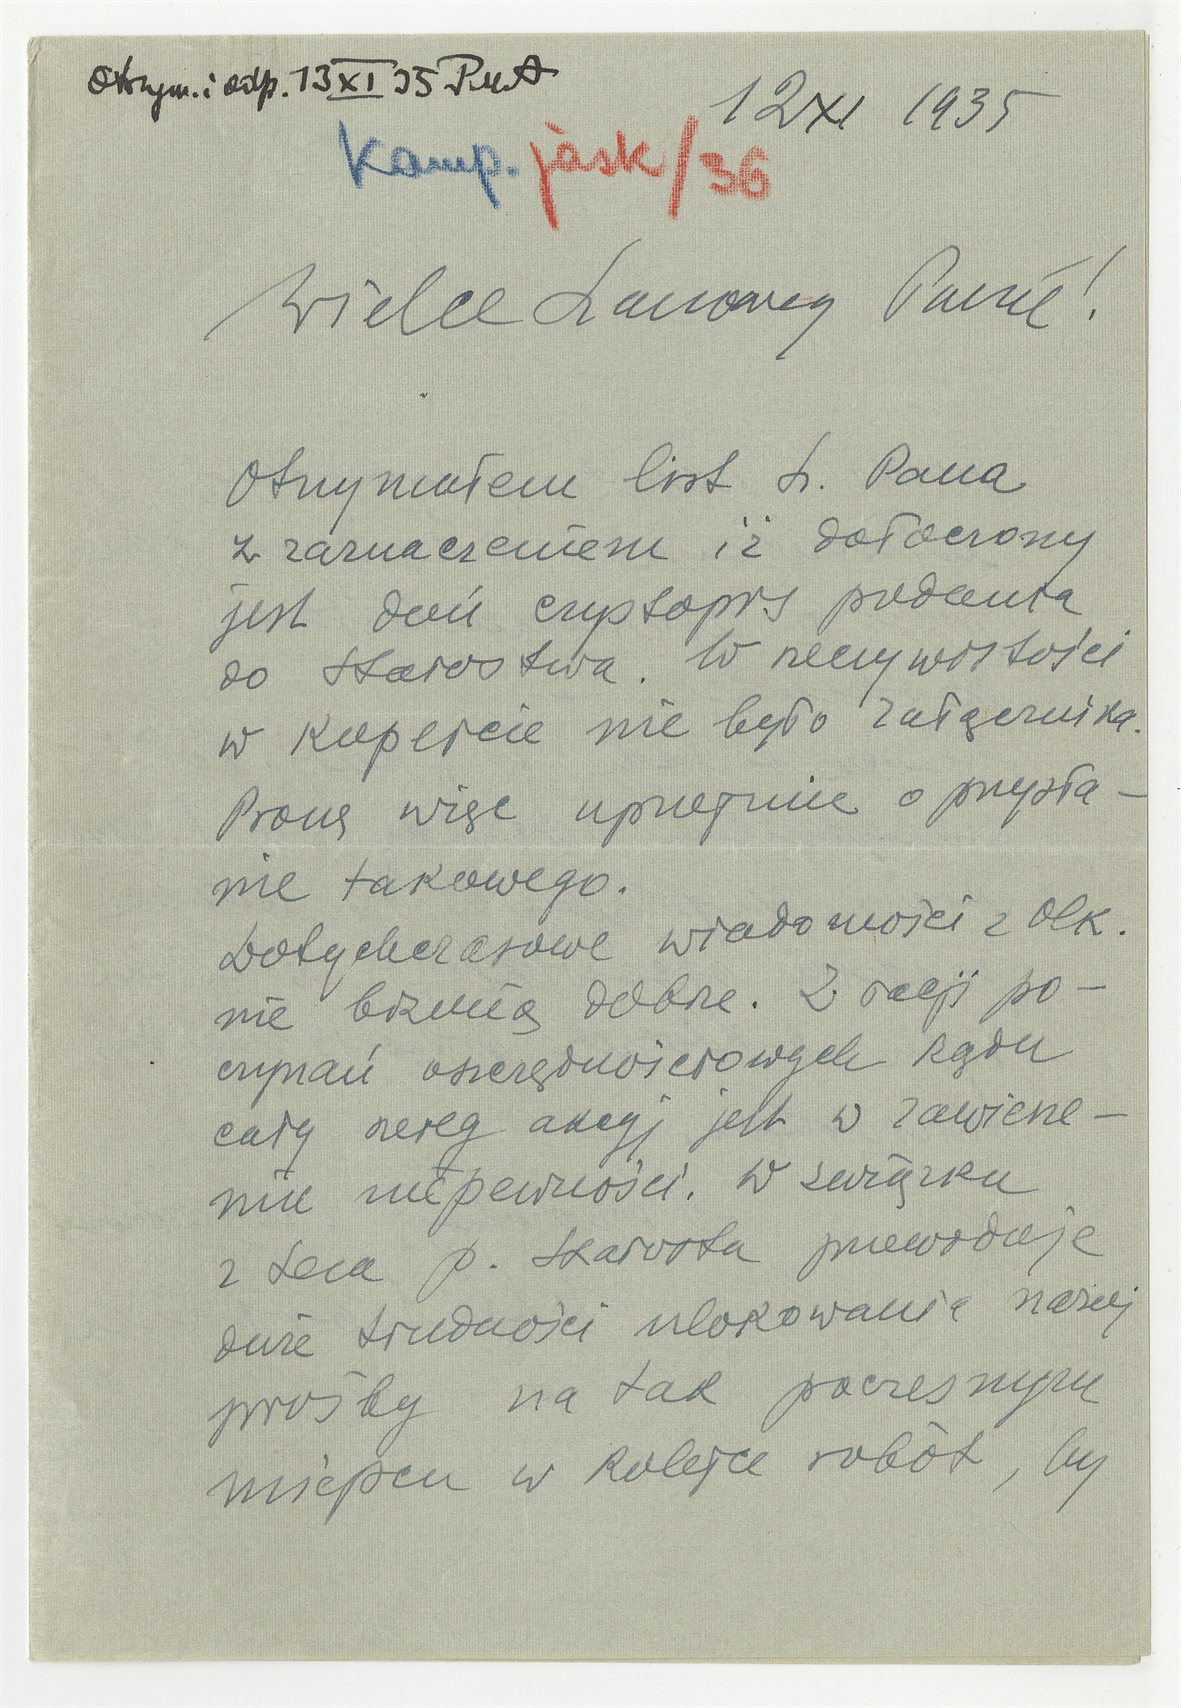 Otrzym. i odp. 13 XI 35 PMA
12 XI 1935
Kamp. jask/36
Wielce Szanowny Panie!
Otrzymałem list Sz. Pana
z zaznaczeniem iż dołączony
jest doń czystopis podania
do Starostwa. W rzeczywistości
w kopercie nie było załącznika.
Proszę więc uprzejmie o przysła-
nie takowego.
Dotychczasowe wiadomości z Olk.
nie brzmią dobrze. Z racji po-
czynań oszczędnościowych Rządu
cały szereg akcyj jest w zawiesze-
niu niepewności. W związku
z tem p. Starosta przewiduje
duże trudności ulokowania naszej
prośby na tak poczesnym
miejscu w kolejce robót, by